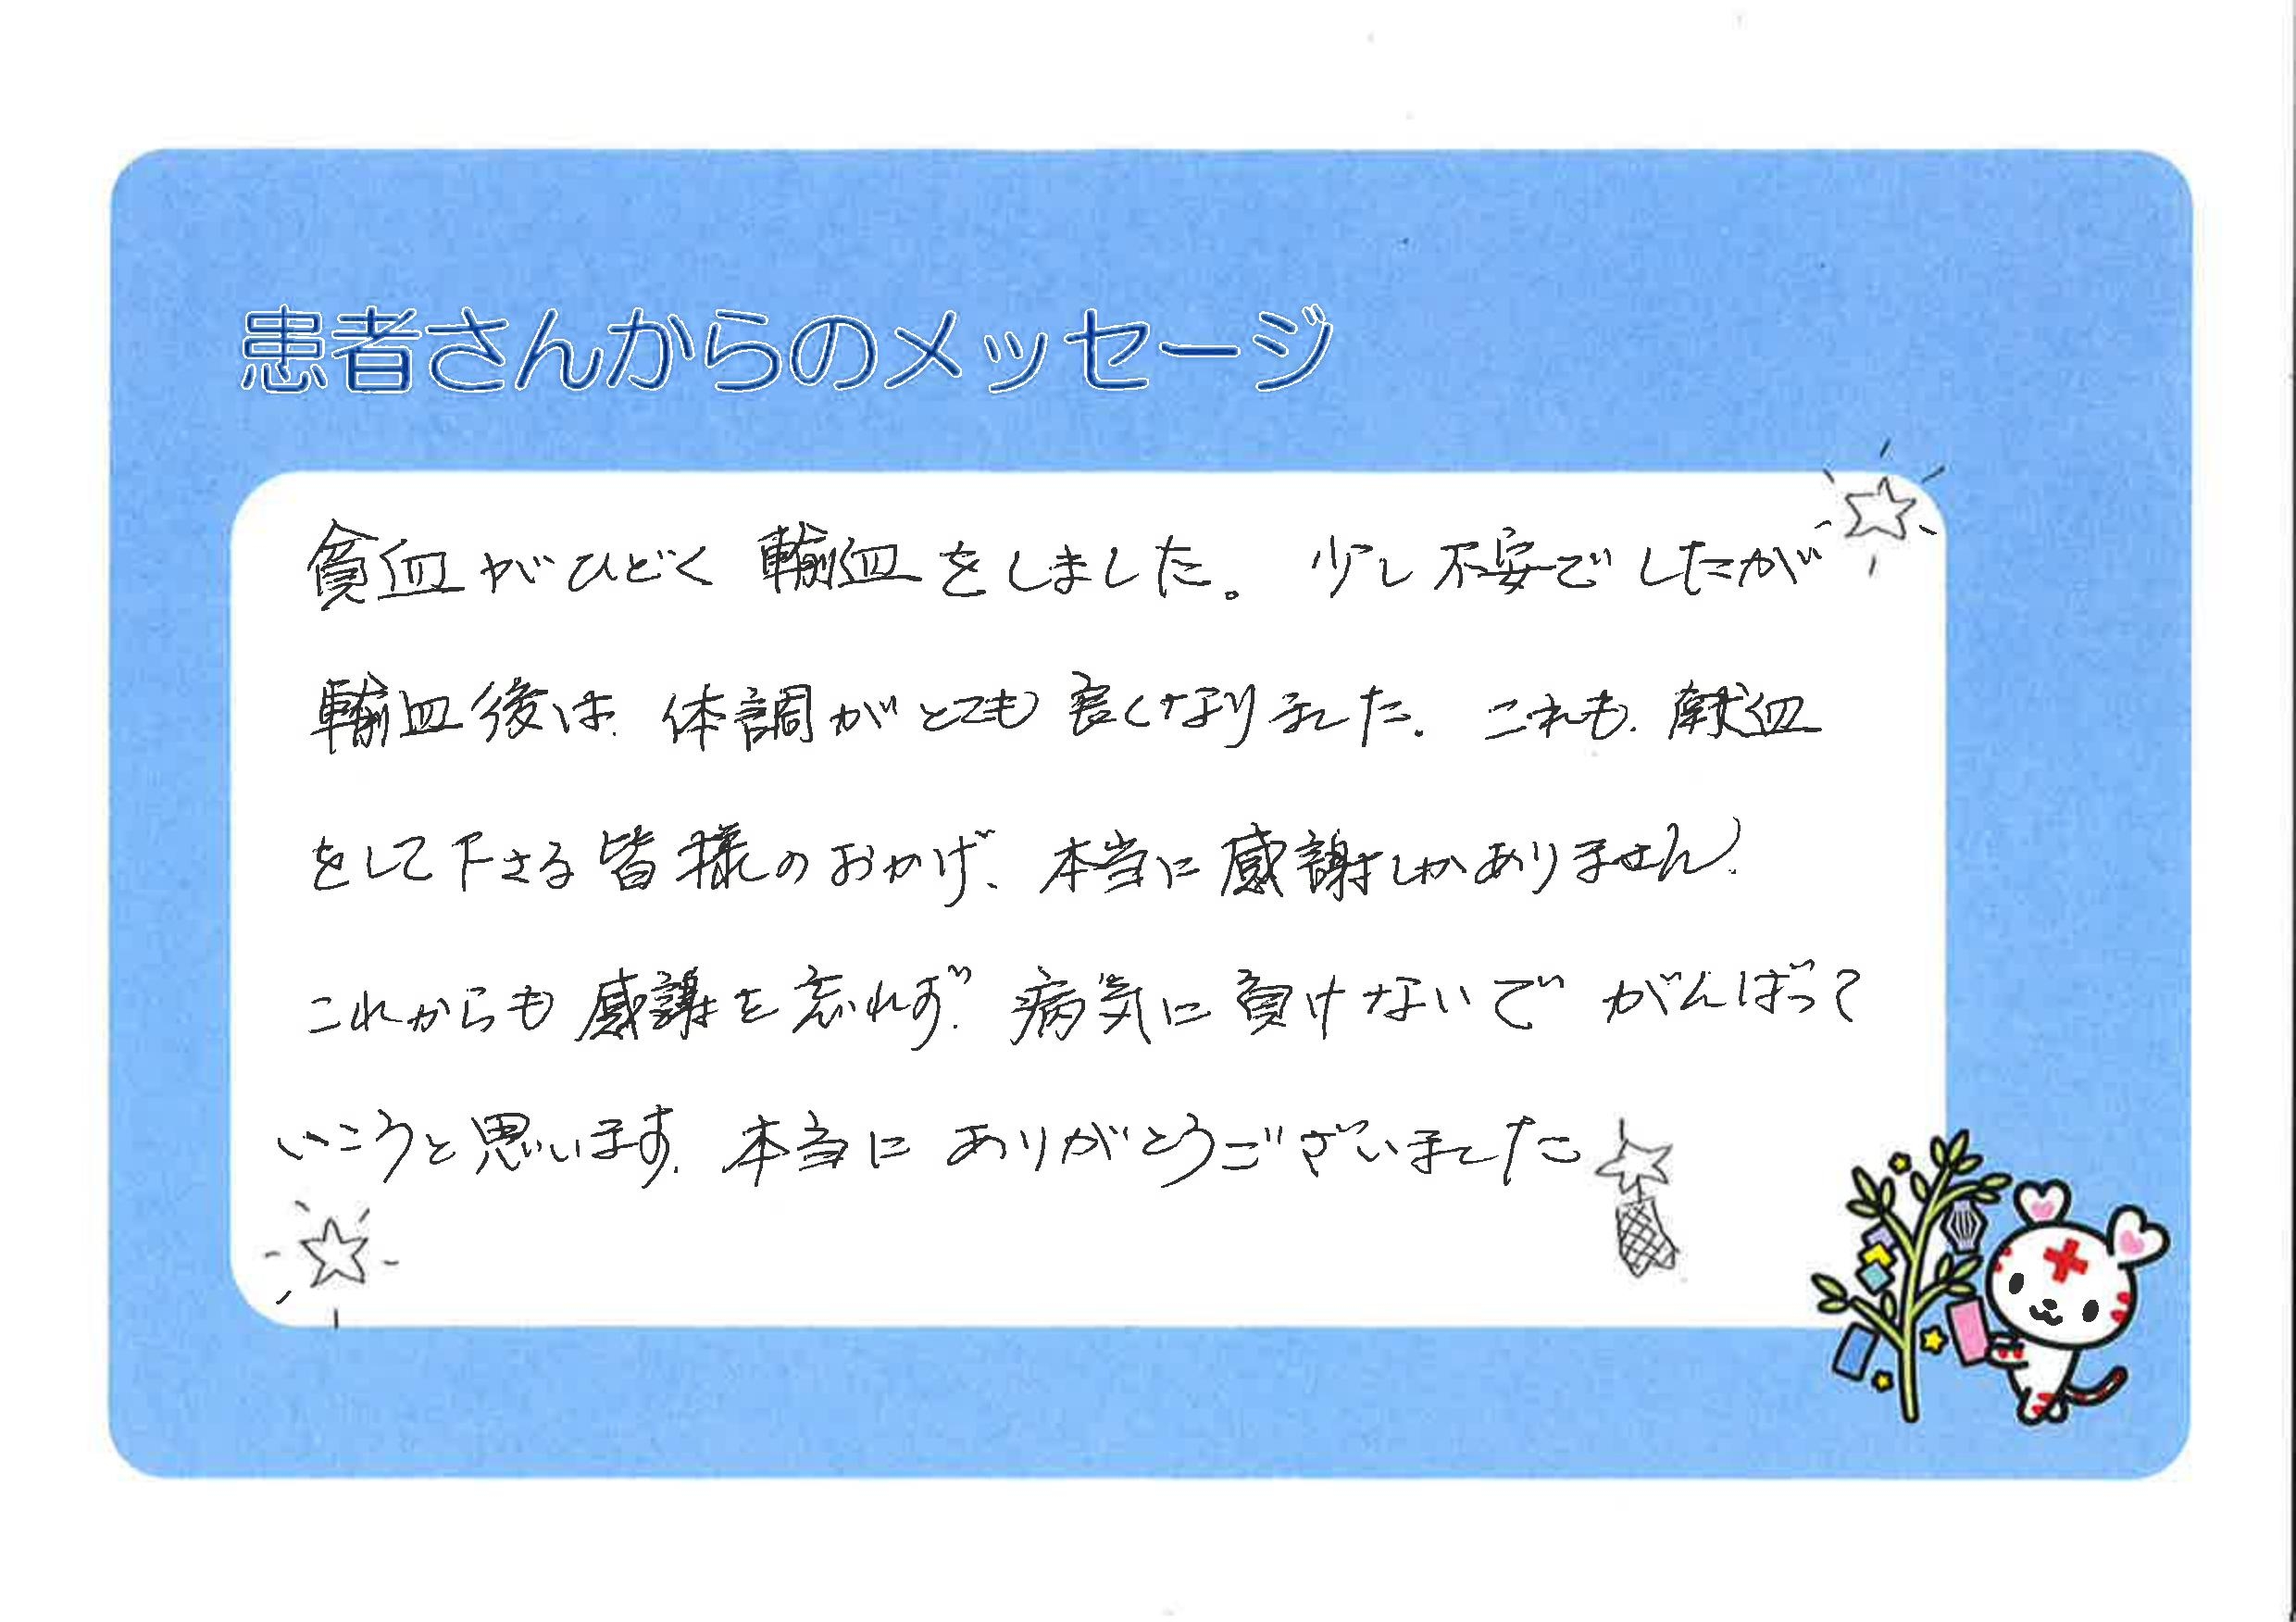 患者さんからのメッセージ
貧血がひどく 輸血をしました。 少し不安でしたが
輸血後は、体調がとても良くなりました。 これも、献血
をして下さる皆様のおかげ、本当に感謝しかありません。
これからも感謝を忘れず、病気に負けないで がんばって
いこうと思います。本当に ありがとうございました